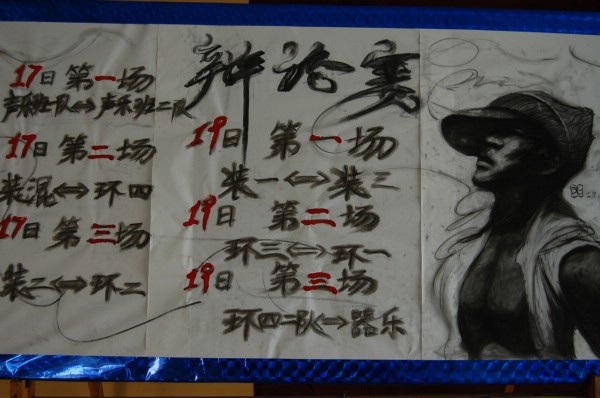 辩论赛
17日 第一场
声乐班一队⇔声乐班二队
17日 第二场
装混⇔环四
17日 第三场
装二⇔环二
19日 第一场
装一⇔装三
19日 第二场
环三⇔环一
19日 第三场
环四二队⇔器乐